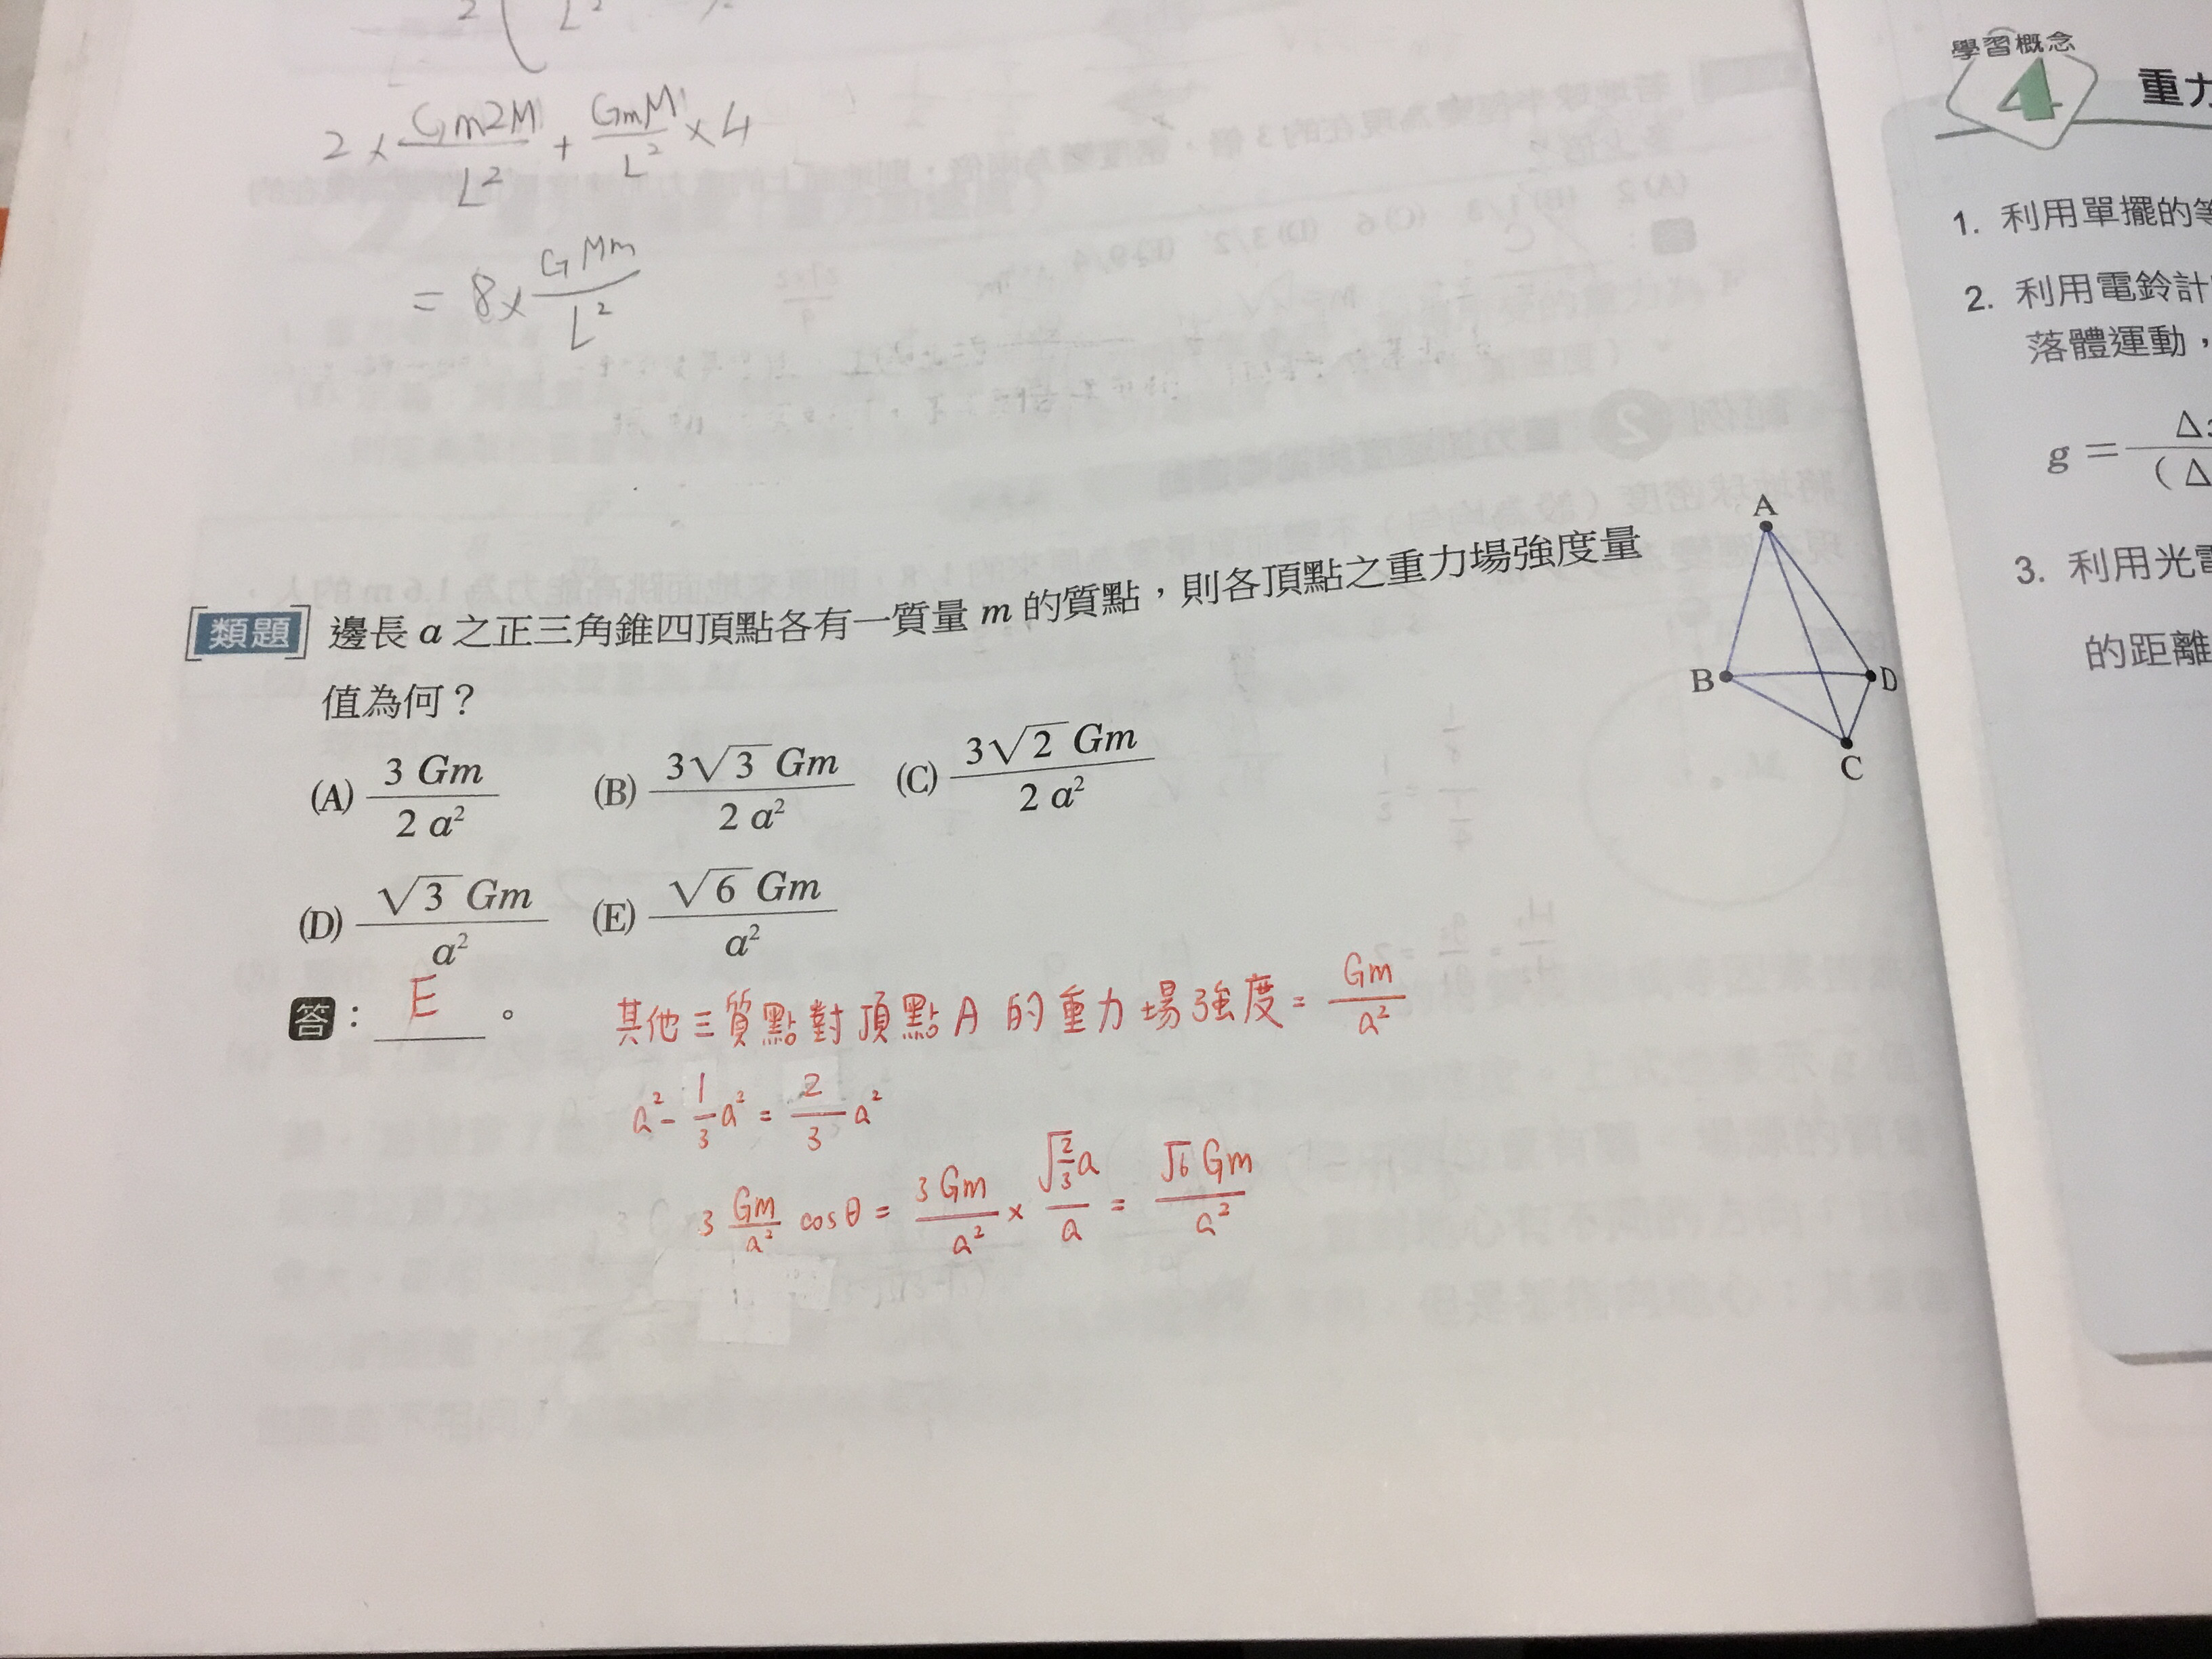 2 × Gm2M / L² + GmM / L² × 4
= 8 × GMm / L²
[類題] 邊長 a 之正三角錐四頂點各有一質量 m 的質點，則各頂點之重力場強度量
值為何？
(A) 3 Gm / 2 a² (B) 3√3 Gm / 2 a² (C) 3√2 Gm / 2 a²
(D) √3 Gm / a² (E) √6 Gm / a²
答：E。
其他三質點對頂點A的重力場強度 = Gm / a²
a² - 1/3 a² = 2/3 a²
3 Gm/a² cosθ = 3Gm / a² × √(2/3) a / a = √6 Gm / a²
A
B
D
C
學習概念
4 重力
1. 利用單擺的等
2. 利用電鈴計
落體運動，
g =
3. 利用光電
的距離